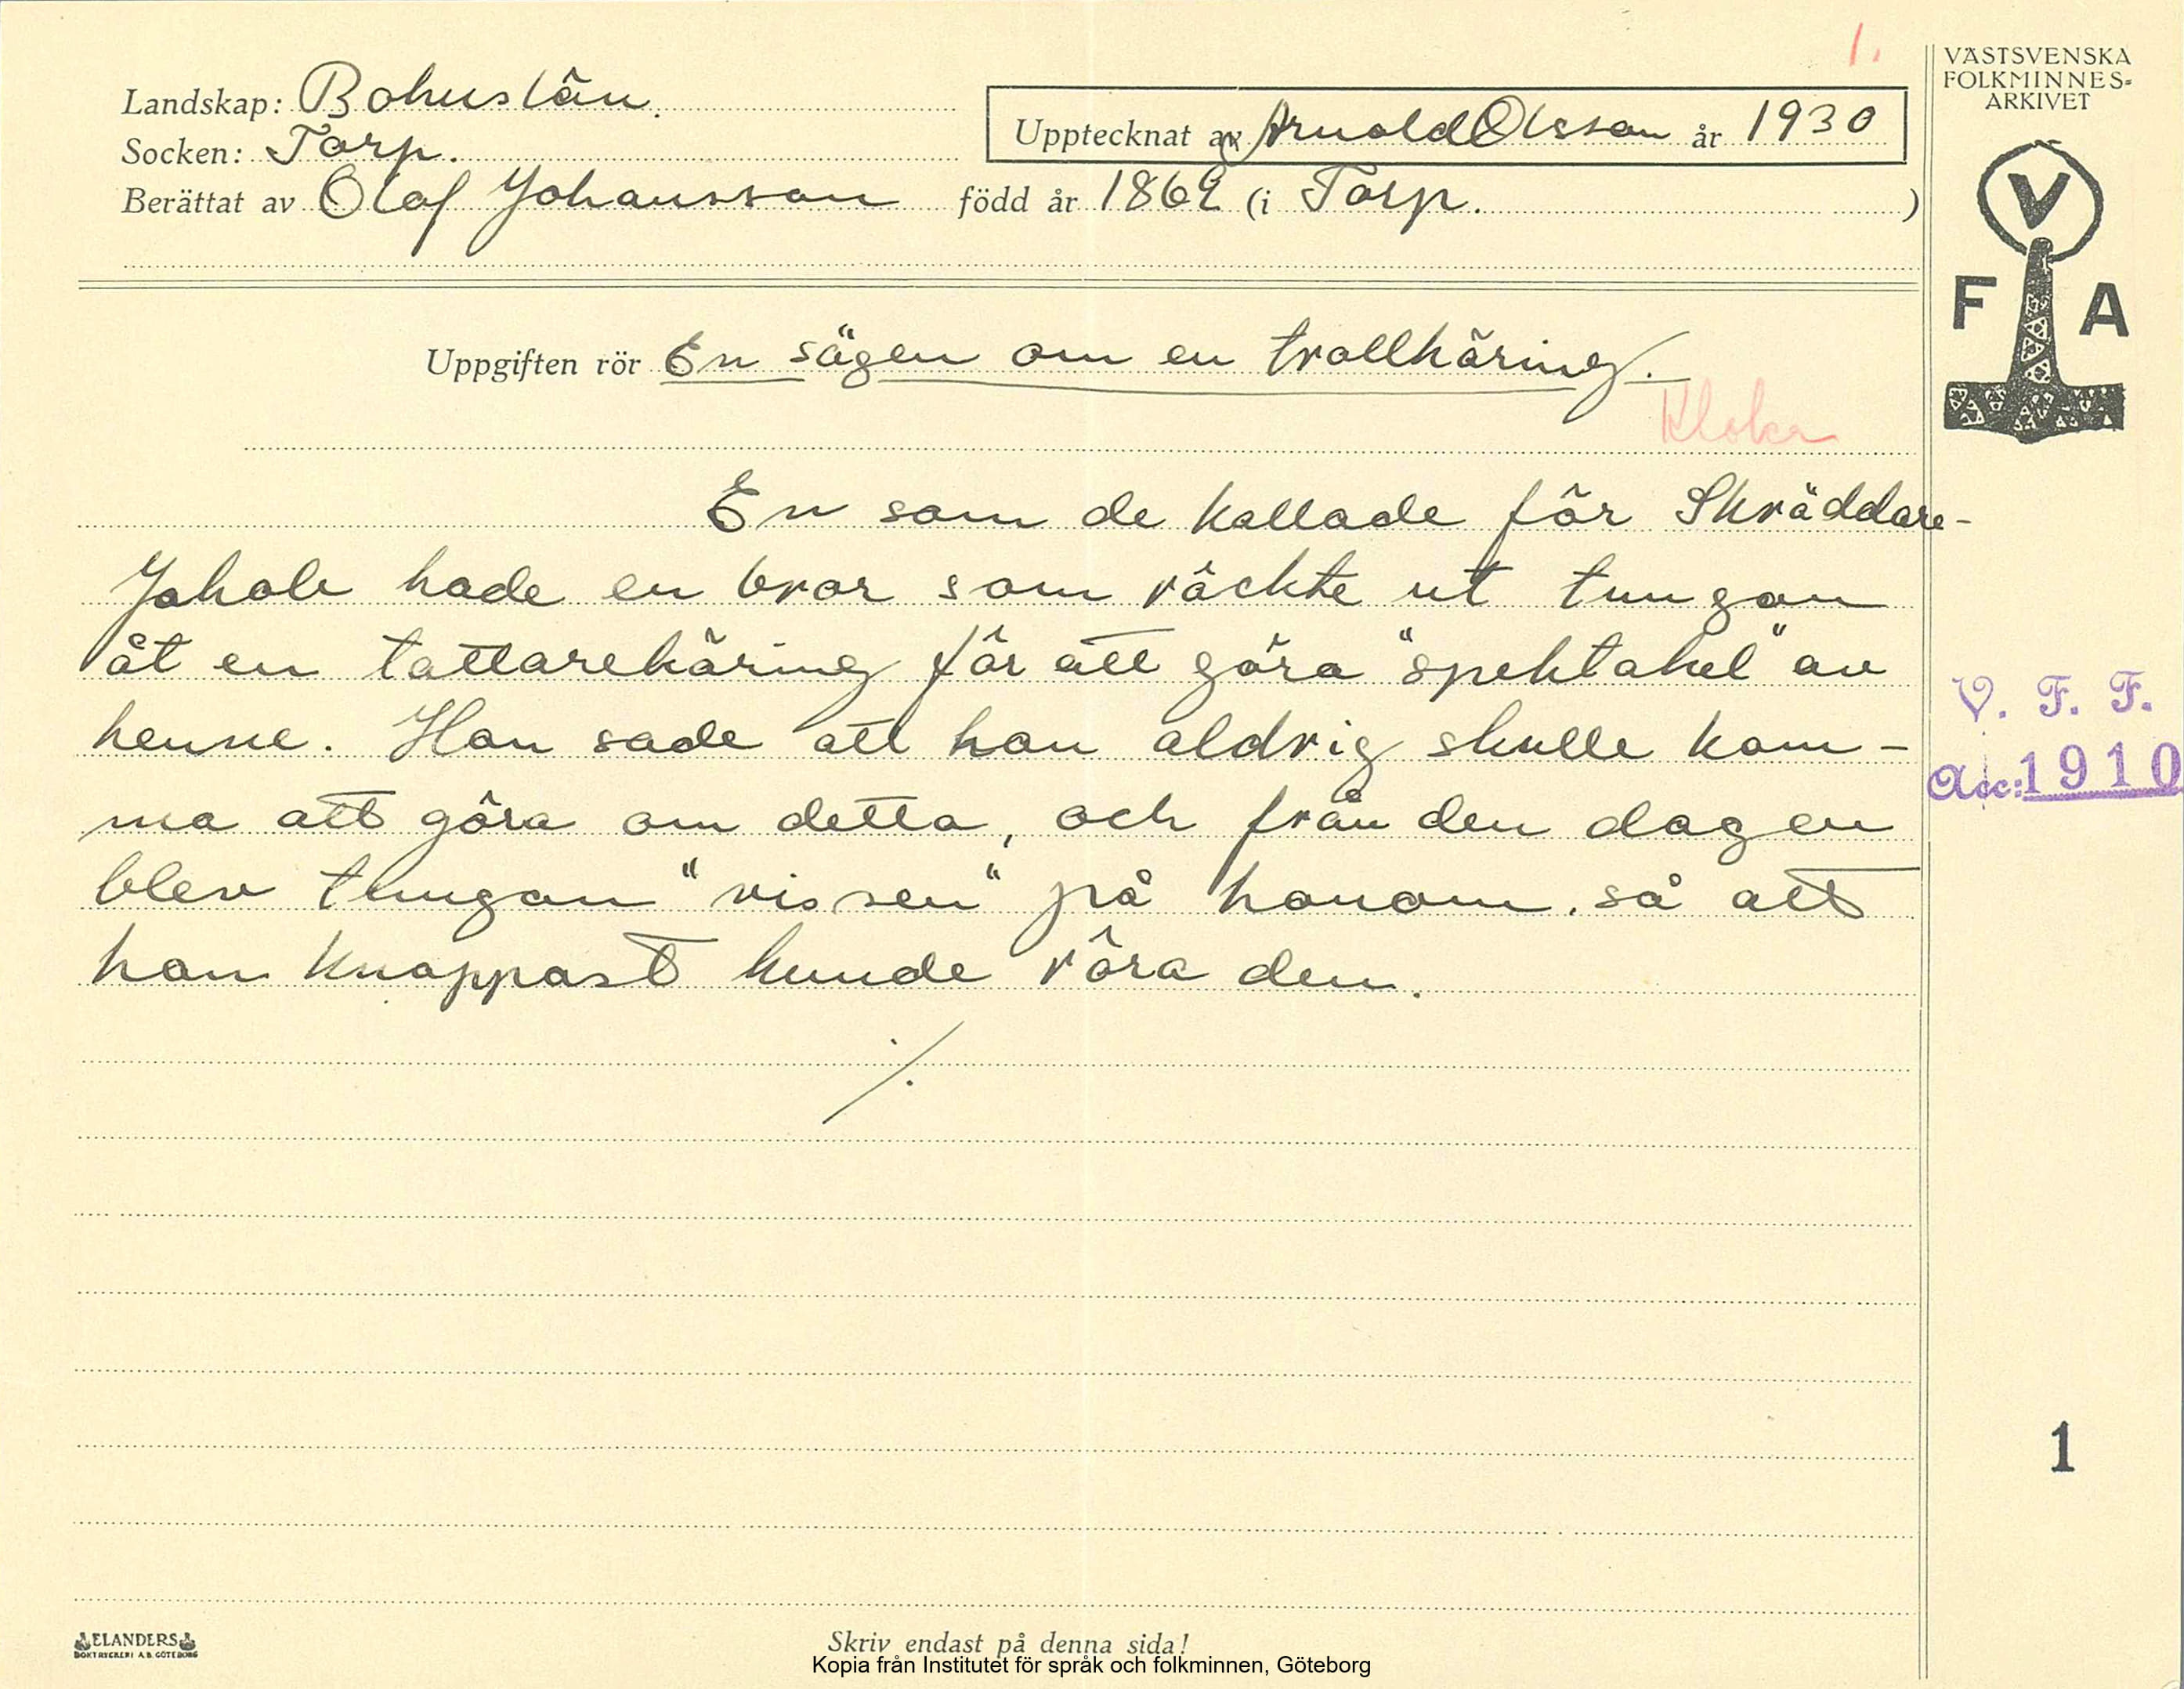 1.
VÄSTSVENSKA
FOLKMINNES=
ARKIVET
Landskap: Bohuslän.
Upptecknat av Arnold Olsson år 1930
Socken: Torp.
Berättat av Olaf Johansson född år 1862 (i Torp. )
V
F A
Uppgiften rör En sägen om en trollkäring.
Kloka
En som de kallade för Skräddare-
Jakob hade en bror som räckte ut tungan
åt en tattarekäring för att göra "spektakel" av
henne. Hon sade att han aldrig skulle kom-
ma att göra om detta, och från den dagen
blev tungan "vissen" på honom, så att
han knappast kunde röra den.
V. F. F.
Acc: 1910
1
ELANDERS
BOKTRYCKERI A.B. GÖTEBORG
Skriv endast på denna sida!
Kopia från Institutet för språk och folkminnen, Göteborg